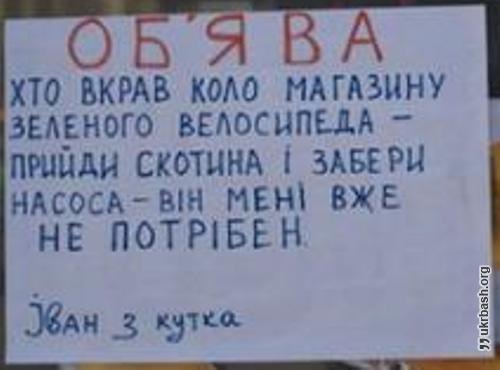 ОБ'ЯВА
ХТО ВКРАВ КОЛО МАГАЗИНУ
ЗЕЛЕНОГО ВЕЛОСИПЕДА –
ПРИЙДИ СКОТИНА І ЗАБЕРИ
НАСОСА – ВІН МЕНІ ВЖЕ
НЕ ПОТРІБЕН
Іван з кутка
ukrbash.org